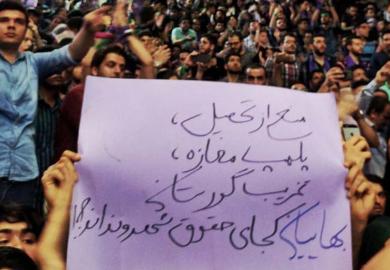 منع از تحصیل،
پلمپ مغازه،
تخریب گورستان
بهاییان کجای حقوق شهروندی اند؟!